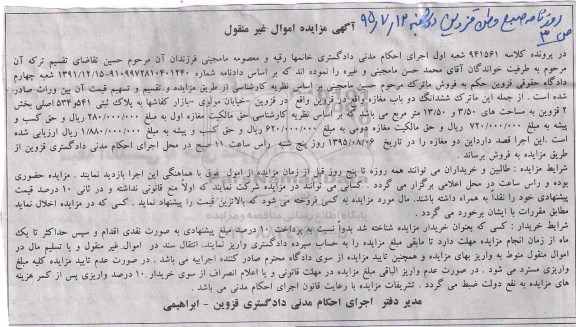 روزنامه صبح وطن قزوین دوشنبه ۹۵/۷/۱۲
ص ۳
آگهی مزایده اموال غیر منقول
در پرونده کلاسه ۹۴۱۵۶۱ شعبه اول اجرای احکام مدنی دادگستری خانمها رقیه و معصومه مامجینی فرزندان آن مرحوم حسین تقاضای تقسیم ترکه آن
مرحوم به طرفیت خواندگان آقای محمد حسن مامجینی و غیره را نموده اند که بر اساس دادنامه شماره ۹۱۰۹۹۷۲۸۱۰۴۰۱۲۴۰-۱۳۹۱/۱۲/۱۵ شعبه چهارم
دادگاه حقوقی قزوین حکم به فروش ماترک مرحوم حسن مامجینی بر اساس نظریه کارشناسی از طریق مزایده و تقسیم و تسهیم قیمت آن بین وراث صادر
شده است . از جمله این ماترک ششدانگ دو باب مغازه واقع در قزوین واقع در قزوین –خیابان مولوی –بازار کفاشها به پلاک ثبتی ۵۴۱و۵۳۴ اصلی بخش
۲ قزوین به مساحت های ۳/۵۰ و ۱۳/۵۰ متر مربع می باشد که بر اساس نظریه کارشناسی حق مالکیت مغازه اول به مبلغ ۲۸۰/۰۰۰/۰۰۰ ریال و حق کسب و
پیشه به مبلغ ۷۲۰/۰۰۰/۰۰۰ ریال و حق مالکیت مغازه دومی به مبلغ ۶۲۰/۰۰۰/۰۰۰ ریال و حق کسب و پیشه به مبلغ ۱/۸۸۰/۰۰۰/۰۰۰ ریال ارزیابی شده
است .این اجرا قصد دارداین دو مغازه را در تاریخ ۱۳۹۵/۰۸/۰۶ روز پنج شنبه راس ساعت ۱۱ صبح در محل اجرای احکام مدنی دادگستری قزوین از
طریق مزایده به فروش برساند .
شرایط مزایده : طالبین و خریداران می توانند همه روزه تا پنج روز قبل از زمان مزایده از اموال فوق با هماهنگی این اجرا بازدید نمایند . مزایده حضوری
بوده و راس ساعت در محل اعلامی برگزار می گردد . کسانی می توانند در مزایده شرکت نمایند که اولاً منع قانونی نداشته و در ثانی ۱۰ درصد قیمت
پیشنهادی خود را نقداً به همراه داشته باشند. مال مورد مزایده به کسی فروخته می شود که بالاترین قیمت را پیشنهاد نماید . کسی که در مزایده اخلال نماید
مطابق مقررات با ایشان برخورد می گردد .
شرایط خریدار : کسی که بعنوان خریدار مزایده شناخته شد بدوا نسبت به پرداخت ۱۰ درصد مبلغ پیشنهادی به صورت نقدی اقدام و سپس حداکثر تا یک
ماه از زمان انجام مزایده مهلت دارد تا مابقی مبلغ مزایده را به حساب سپرده دادگستری واریز نمایند. انتقال سند در اموال غیر منقول و یا تسلیم مال در
اموال منقول منوط به واریز بهای مزایده و همچنین تایید مزایده از سوی دادگاه محترم صادر کننده اجراییه می باشد . در صورت عدم تایید مزایده کلیه مبلغ
واریزی مسترد می شود . در صورت عدم واریز الباقی مبلغ مزایده در مهلت قانونی و یا اعلام انصراف از سوی خریدار ۱۰ درصد واریزی پس از کسر هزینه
های مزایده به نفع دولت ضبط می گردد . تشریفات مزایده با رعایت قانون اجرای احکام مدنی می باشد .
مدیر دفتر اجرای احکام مدنی دادگستری قزوین - ابراهیمی